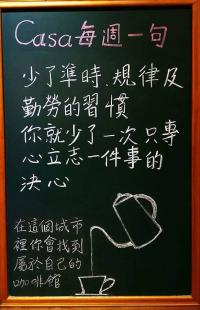 Casa每週一句
少了準時、規律及
勤勞的習慣
你就少了一次只專
心立志一件事的
決心
在這個城市
裡你會找到
屬於自己的
咖啡館